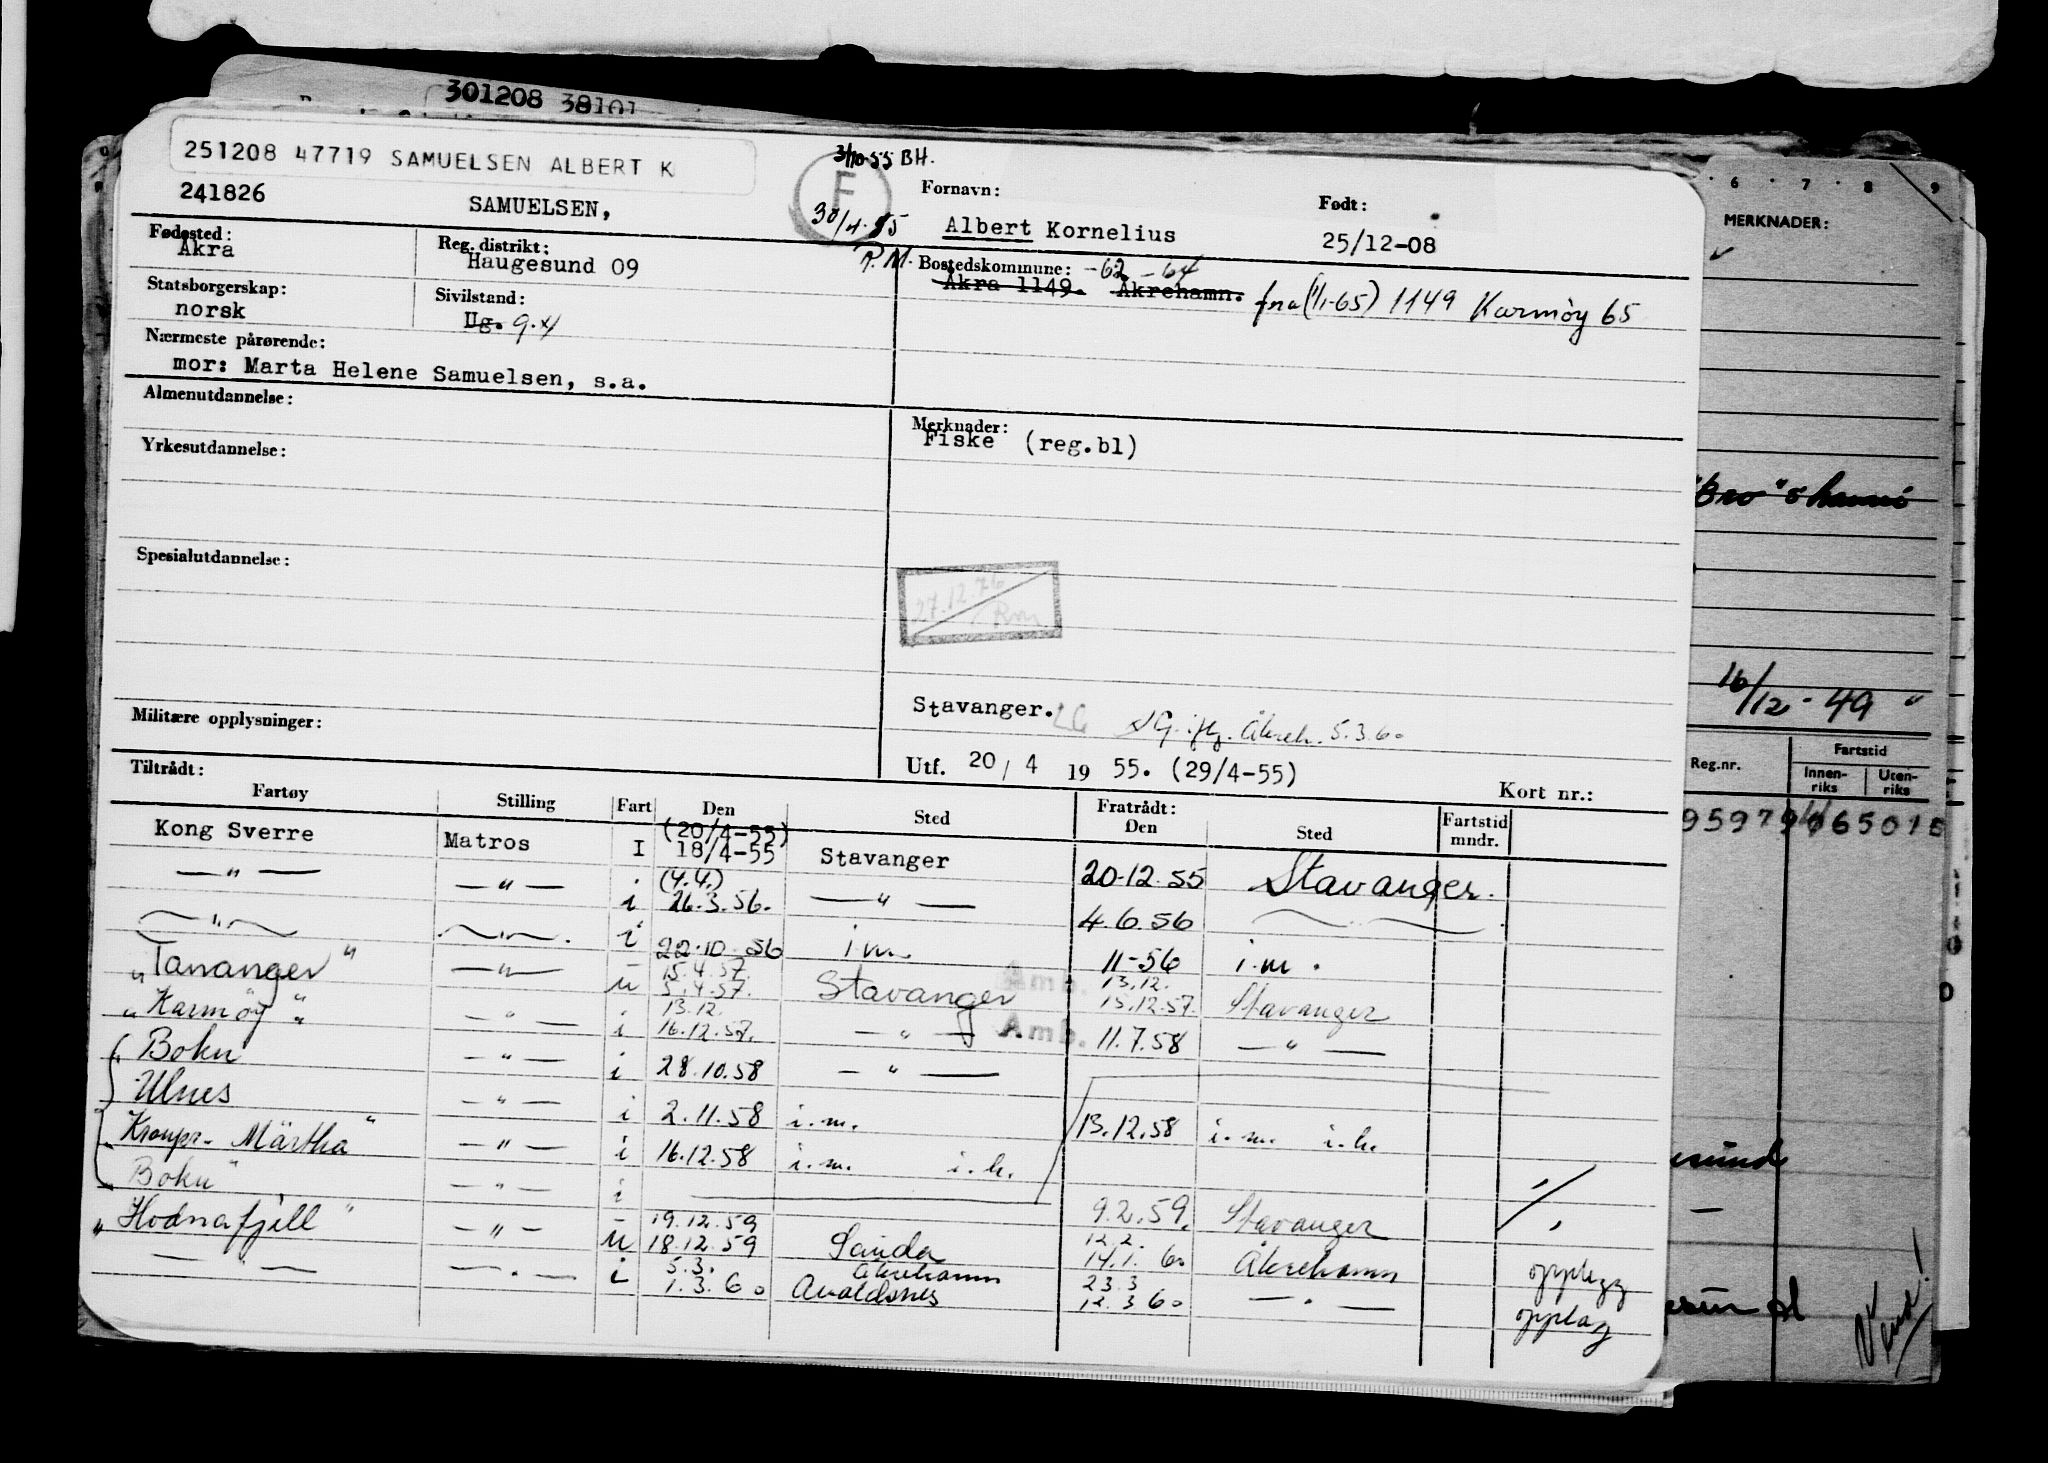 301208 38101
251208 47719 SAMUELSEN ALBERT K
241826
SAMUELSEN,
3/10-55 BH.
F
30/4-55
P.M.
Fornavn:
Albert Kornelius
Født:
25/12-08
Fødested:
Åkra
Reg. distrikt:
Haugesund 09
Bostedskommune: -62 -64
Åkra 1149. Åkrehamn. fra (1/1-65) 1149 Karmøy 65
Statsborgerskap:
norsk
Sivilstand:
Ug. g.x/
Nærmeste pårørende:
mor: Marta Helene Samuelsen, s.a.
Almenutdannelse:
Merknader:
Fiske (reg.bl)
Yrkesutdannelse:
Spesialutdannelse:
27.12.76
Militære opplysninger:
Stavanger.
G. iflg. Åkreh. 5.3.60
Utf. 20/4 1955. (29/4-55)
Kort nr.:
Tiltrådt:
Fratrådt:
Fartøy Stilling Fart Den Sted Den Sted Fartstid mndr.
Kong Sverre Matros I (20/4-55) 18/4-55 Stavanger 20-12.55 Stavanger.
—"— —"— i (4.4.) 26.3.56. —"— 4.6.56
—"— —"— i 22.10-56 i.m. 11-56 i.m.
"Tananger" —"— u 15.4.57. 5.4.57. Stavanger Amb. 13.12. 15.12.57. Stavanger
"Karmøy" —"— i 13.12. 16.12.57. —"— Amb. 11.7.58 —"—
Bokn —"— i 28.10.58 —"—
Ulnes —"— i 2.11.58 i.m. 13.12.58 i.m. i.h.
Kronpr. Märtha" —"— i 16.12.58 i.m. i.h.
Bokn" —"— i 9.2.59. Stavanger
"Hodnafjell" —"— u 19.12.59 18.12.59 Sauda 12.2. 14.1.60 Åkrehamn opplegg
—"— —"— i 5.3. 1.3.60 Åkrehamn Avaldsnes 23.3 12.3.60 —"— opplag
6 7 8 9
MERKNADER:
"Bro" s havari
16/12-49 "
Reg.nr.
Fartstid
Innen-riks
Uten-riks